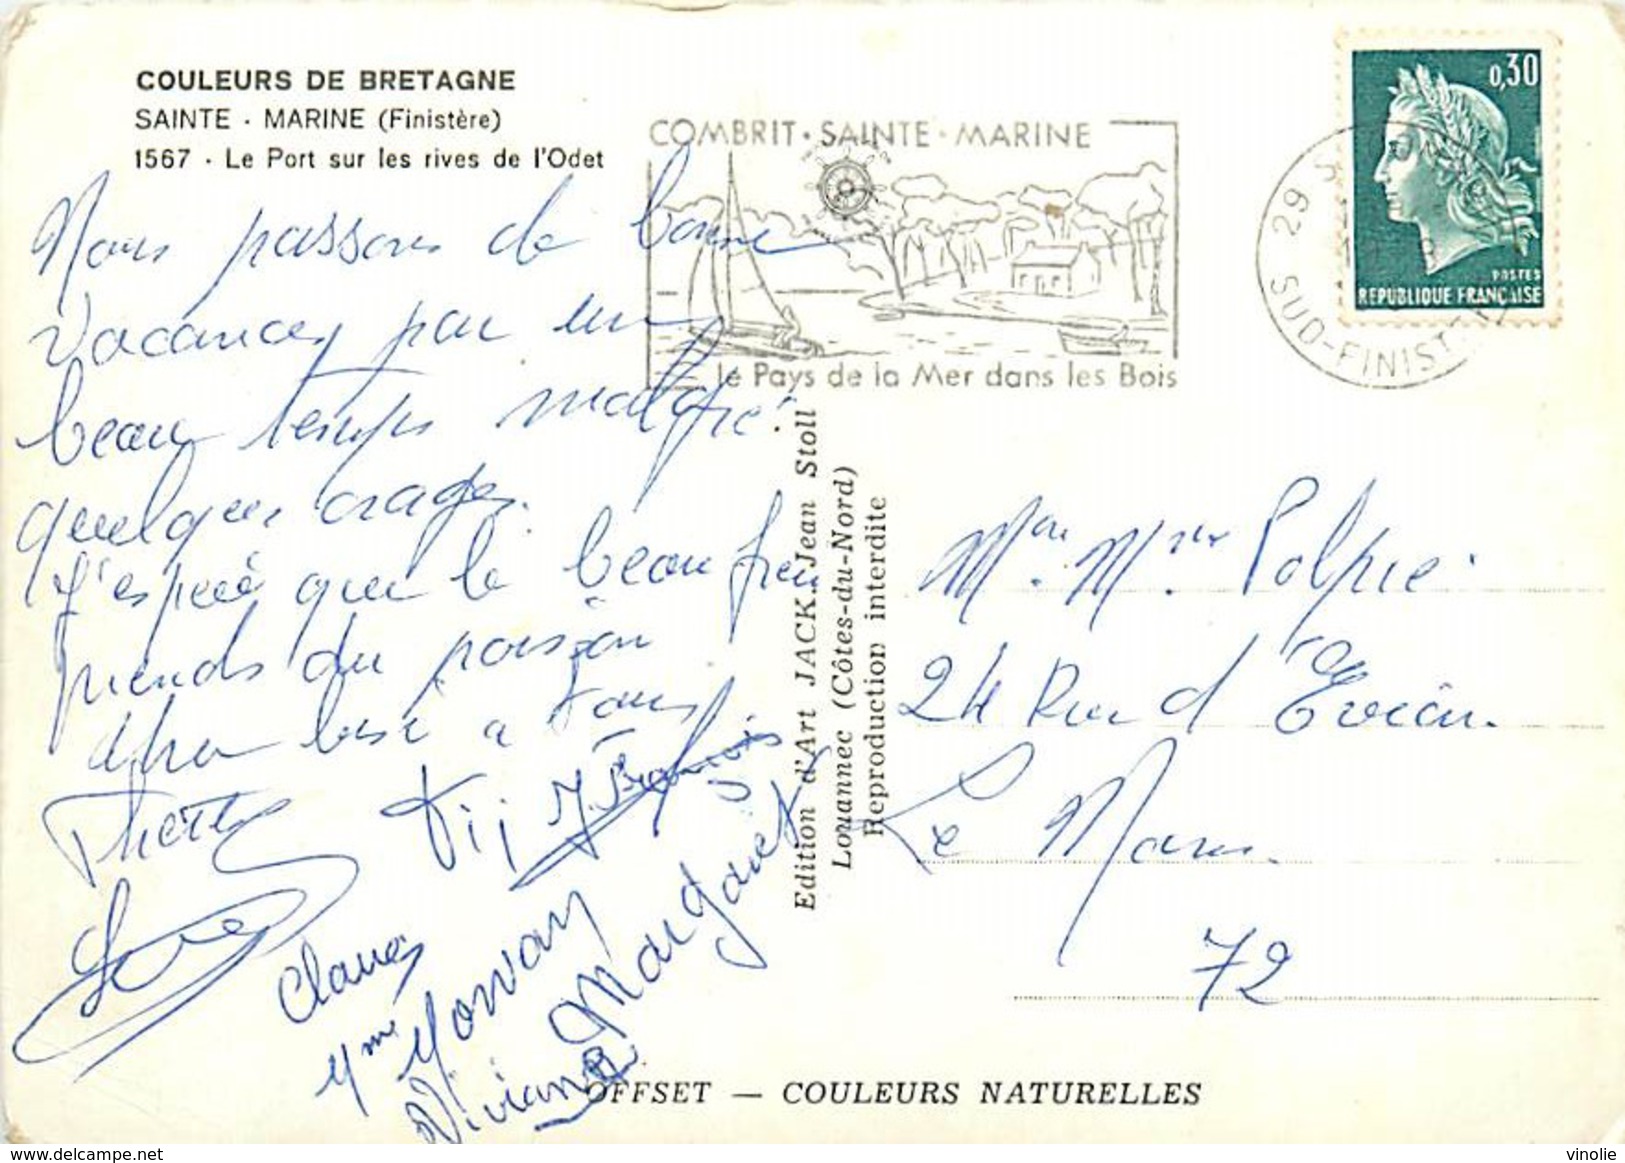 COULEURS DE BRETAGNE
SAINTE - MARINE (Finistère)
1567 - Le Port sur les rives de l'Odet
COMBRIT · SAINTE · MARINE
le Pays de la Mer dans les Bois
0,30
POSTES
REPUBLIQUE FRANÇAISE
29
SUD-FINIST
Nous passons de bonne
vacances par un
beau temps malgré
quelques orages.
J'espère que le beau frere
prends du poisson
bise a tous
J. François
Claude
Mme Morvan
Viviane
Margaret
Edition d'Art JACK. Jean Stoll
Louannec (Côtes-du-Nord)
Reproduction interdite
24 Rue d'Evian
Le Mans
72
OFFSET — COULEURS NATURELLES
delcampe.net
vinolie